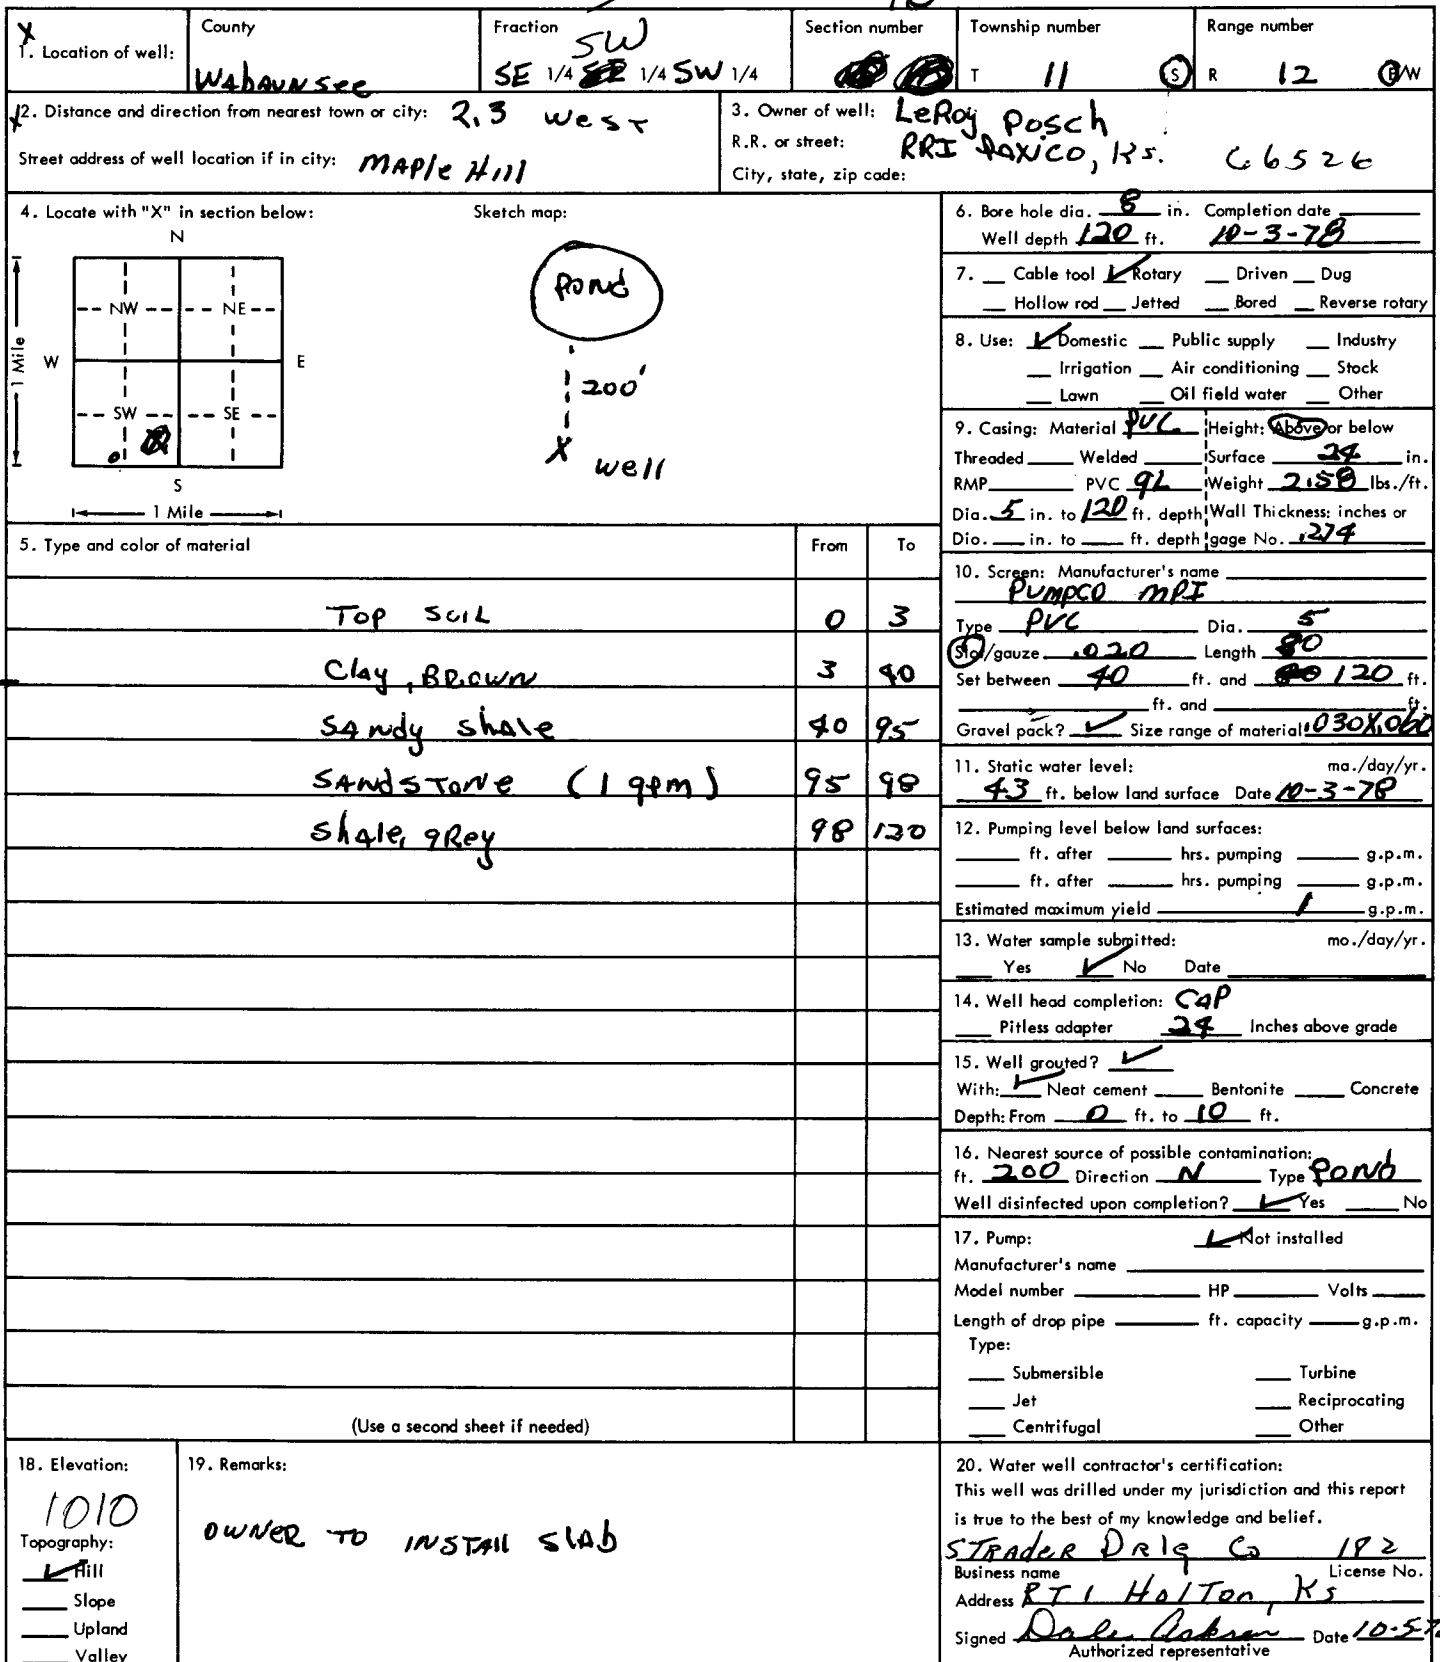 X
1. Location of well:
County
Wabaunsee
Fraction
SW
SE 1/4 1/4 SW 1/4
Section number
Township number
T 11 S
Range number
R 12 E/W
2. Distance and direction from nearest town or city: 2.3 west
Street address of well location if in city: Maple Hill
3. Owner of well: LeRoy Posch
R.R. or street: RR1 Paxico, Ks. 66526
City, state, zip code:
4. Locate with "X" in section below:
Sketch map:
N
NW NE
W E
SW SE
S
1 Mile
1 Mile
Pond
200'
X well
5. Type and color of material From To
Top Soil 0 3
Clay, Brown 3 40
Sandy Shale 40 95
Sandstone (1 gpm) 95 98
Shale, grey 98 120
(Use a second sheet if needed)
6. Bore hole dia. 8 in. Completion date
Well depth 120 ft. 10-3-78
7. Cable tool ✓ Rotary Driven Dug
Hollow rod Jetted Bored Reverse rotary
8. Use: ✓ Domestic Public supply Industry
Irrigation Air conditioning Stock
Lawn Oil field water Other
9. Casing: Material PVC Height: Above or below
Threaded Welded Surface 24 in.
RMP PVC GL Weight 2.58 lbs./ft.
Dia. 5 in. to 120 ft. depth Wall Thickness: inches or
Dia. in. to ft. depth gage No. .274
10. Screen: Manufacturer's name
Pumpco MPI
Type PVC Dia. 5
Slot/gauze .020 Length 80
Set between 40 ft. and 120 ft.
ft. and ft.
Gravel pack? ✓ Size range of material .030X.060
11. Static water level: mo./day/yr.
43 ft. below land surface Date 10-3-78
12. Pumping level below land surfaces:
ft. after hrs. pumping g.p.m.
ft. after hrs. pumping g.p.m.
Estimated maximum yield 1 g.p.m.
13. Water sample submitted: mo./day/yr.
Yes ✓ No Date
14. Well head completion: Cap
Pitless adapter 24 Inches above grade
15. Well grouted? ✓
With: ✓ Neat cement Bentonite Concrete
Depth: From 0 ft. to 10 ft.
16. Nearest source of possible contamination:
ft. 200 Direction N Type Pond
Well disinfected upon completion? ✓ Yes No
17. Pump: ✓ Not installed
Manufacturer's name
Model number HP Volts
Length of drop pipe ft. capacity g.p.m.
Type:
Submersible Turbine
Jet Reciprocating
Centrifugal Other
18. Elevation:
1010
Topography:
✓ Hill
Slope
Upland
Valley
19. Remarks:
Owner to install slab
20. Water well contractor's certification:
This well was drilled under my jurisdiction and this report
is true to the best of my knowledge and belief.
Strader Drlg Co 182
Business name License No.
Address RT 1 Holton, Ks
Signed Dale Date 10-5-7
Authorized representative